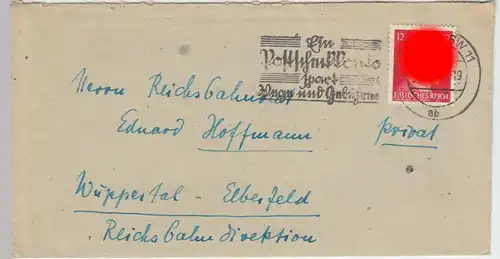 Ein
Postscheckkonto
spart
Wege und Gebühren
12
SW 11
19
ab
DEUTSCHES REICH
Herrn Reichsbahnrat
Eduard Hoffmann privat
Wuppertal - Elberfeld
Reichsbahndirektion